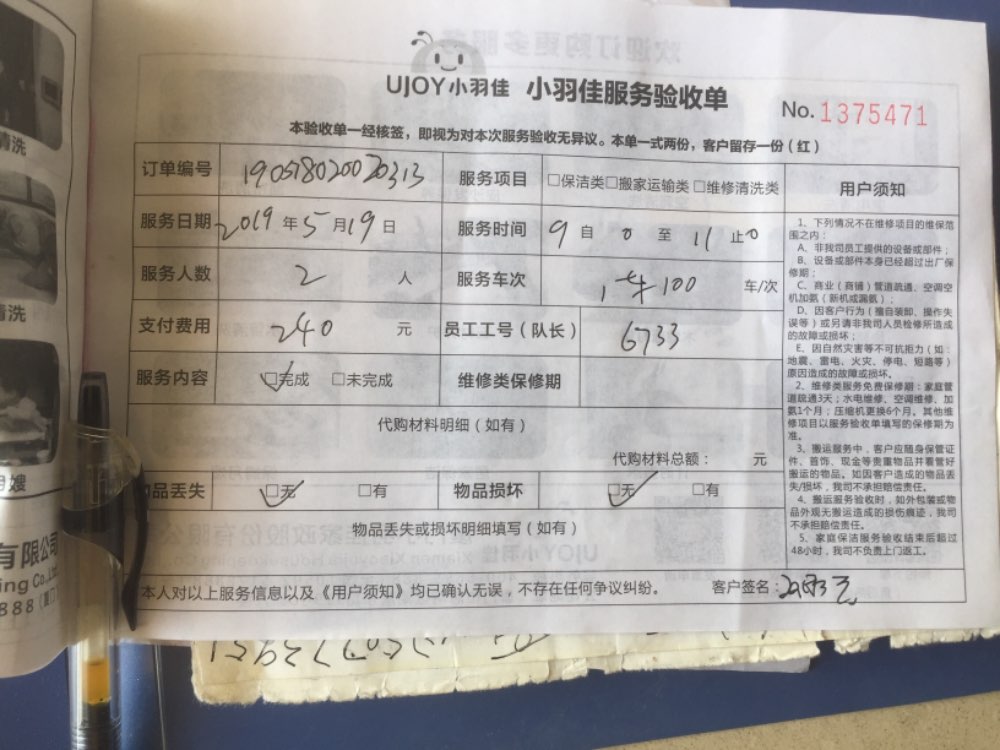 UJOY小羽佳 小羽佳服务验收单 No. 1375471
本验收单一经核签，即视为对本次服务验收无异议。本单一式两份，客户留存一份（红）
订单编号 190518020020313 服务项目 □保洁类□搬家运输类□维修清洗类
服务日期 2019年5月19日 服务时间 9自0至11止0
服务人数 2人 服务车次 1车100 车/次
支付费用 240元 员工工号（队长） 6733
服务内容 ☑完成 □未完成 维修类保修期
代购材料明细（如有）
代购材料总额： 元
物品丢失 ☑无 □有 物品损坏 ☑无 □有
物品丢失或损坏明细填写（如有）
本人对以上服务信息以及《用户须知》均已确认无误，不存在任何争议纠纷。 客户签名：
用户须知
1、下列情况不在维修项目的维保范
围之内：
A、非我司员工提供的设备或部件；
B、设备或部件本身已经超过出厂保
修期；
C、商业（商铺）管道疏通、空调空
机加氨（新机或漏氨）；
D、因客户行为（擅自装卸、操作失
误等）或另请非我司人员检修所造成
的故障或损坏；
E、因自然灾害等不可抗拒力（如：
地震、雷电、火灾、停电、短路等）
原因造成的故障或损坏。
2、维修类服务免费保修期：家庭管
道疏通3天；水电维修、空调维修、加
氨1个月；压缩机更换6个月。其他维
修项目以服务验收单填写的保修期为
准。
3、搬运服务中，客户应随身保管证
件、首饰、现金等贵重物品并看管好
搬运的物品。如因客户造成的物品丢
失/损坏，我司不承担赔偿责任。
4、搬运服务验收时，如外包装或物
品外观无搬运造成的损伤痕迹，我司
不承担赔偿责任。
5、家庭保洁服务验收结束后超过
48小时，我司不负责上门返工。
清洗
清洗
月嫂
有限公司
ing Co.,Ltd
888（厦门